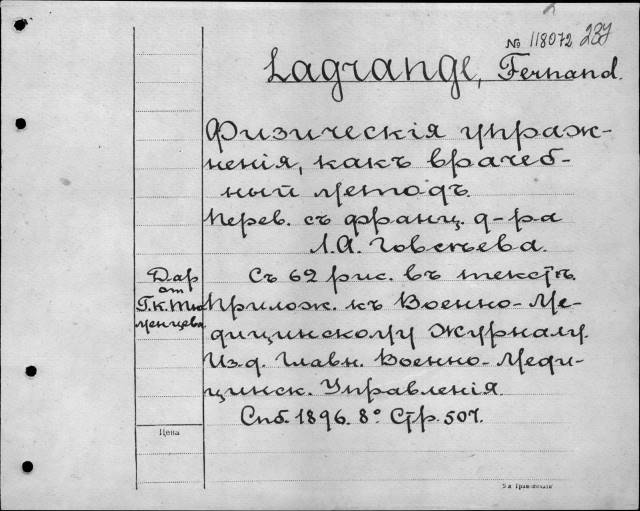 № 118072 237
Lagrange, Fernand.
Физическія упраж-
ненія, какъ врачеб-
ный методъ.
Перев. съ франц. д-ра
Л.А. Говсѣева.
Съ 62 рис. въ текстѣ.
Прилож. къ Военно-Ме-
дицинскому Журналу.
Изд. Главн. Военно-Меди-
цинск. Управленія.
Спб. 1896. 8° Стр. 507.
Дар
от
Г.К. Тю
менцева
Цена